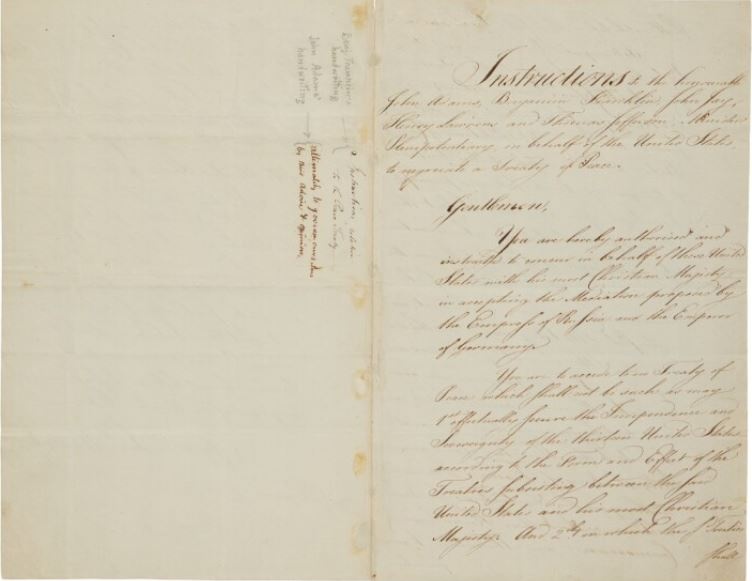 Benj Franklin's
handwriting
John Adams'
handwriting
Instructions relative
to the Peace Treaty
ultimately to govern ourselves
by our advice & opinion,
Instructions to the honorable
John Adams, Benjamin Franklin, John Jay,
Henry Laurens and Thomas Jefferson, Ministers
Plenipotentiary in behalf of the United States,
to negociate a Treaty of Peace.
Gentlemen,
You are hereby authorised and
instructed to concur in behalf of these United
States with his most Christian Majesty
in accepting the Mediation proposed by
the Empress of Russia and the Emperor
of Germany.
You are to accede to no Treaty of
Peace which shall not be such as may
1st effectually secure the Independence and
Sovereignty of the thirteen United States
according to the Form and Effect of the
Treaties subsisting between the said
United States and his most Christian
Majesty. And 2dly in which the sd Treaties
shall